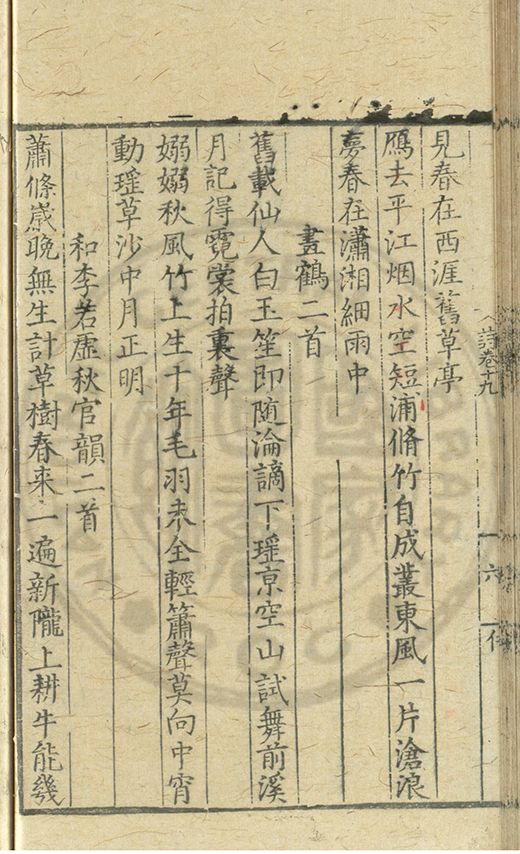 詩卷十九
六
見春在西涯舊草亭
鴈去平江烟水空短浦脩竹自成叢東風一片滄浪
夢春在瀟湘細雨中
畫鶴二首
舊載仙人白玉笙即随淪謫下瑶京空山試舞前溪
月記得霓裳拍裏聲
嫋嫋秋風竹上生十年毛羽未全輕簫聲莫向中宵
動瑶草沙中月正明
和李若虛秋官韻二首
蕭條歲晚無生計草樹春来一遍新隴上耕牛能幾